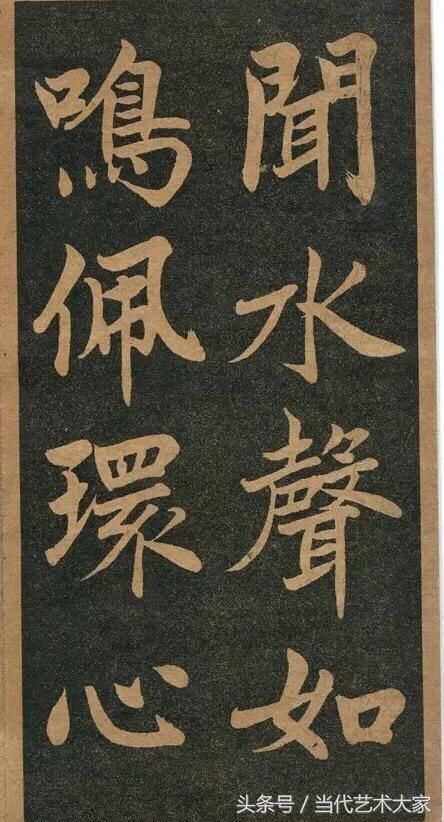 聞水聲如
鳴佩環心
头条号/当代艺术大家